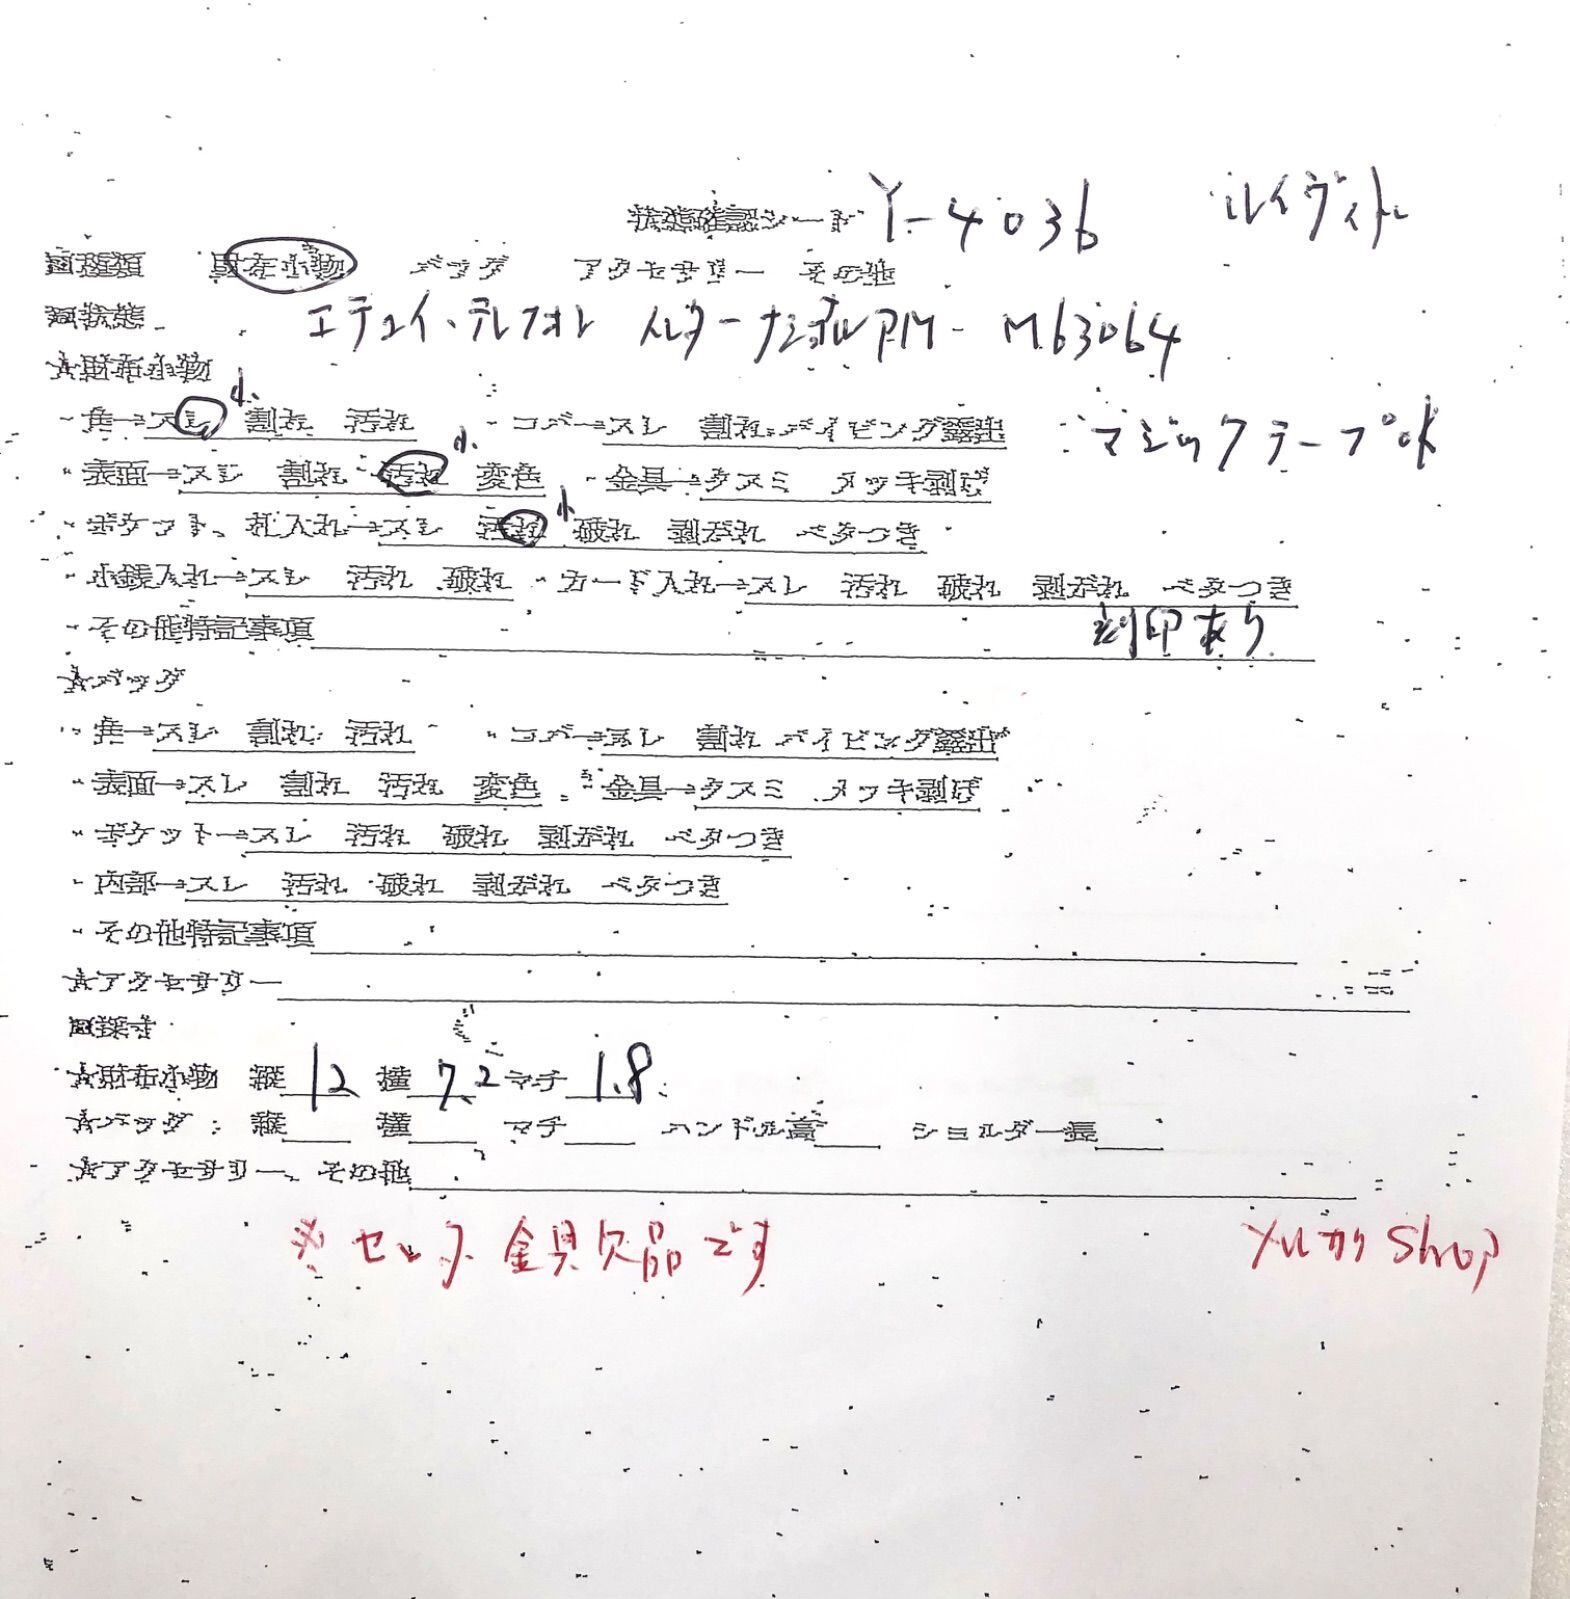 状態確認シート Y-4036 ルイヴィトン
回種類 財布小物 バッグ アクセサリー その他
回状態 エテュイ・テレフォン インターナショナルPM- M63064
☆財布小物
・角→スレ 小 割れ 汚れ ・コバ→スレ 割れ パイピング露出 マジックテープOK
・表面→スレ 割れ 汚れ 小 変色 ・金具→クスミ メッキ剥げ
・ポケット、札入れ→スレ 汚れ 小 破れ 剥がれ ベタつき
・小銭入れ→スレ 汚れ 破れ ・カード入れ→スレ 汚れ 破れ 剥がれ ベタつき
・その他特記事項 刻印あり
☆バッグ
・角→スレ 割れ 汚れ ・コバ→スレ 割れ パイピング露出
・表面→スレ 割れ 汚れ 変色 ・金具→クスミ メッキ剥げ
・ポケット→スレ 汚れ 破れ 剥がれ ベタつき
・内部→スレ 汚れ 破れ 剥がれ ベタつき
・その他特記事項
☆アクセサリー
回採寸
☆財布小物 縦 12 横 7.2 マチ 1.8
☆バッグ 縦 横 マチ ハンドル高 ショルダー長
☆アクセサリー、その他
※ 金具欠品です Shop